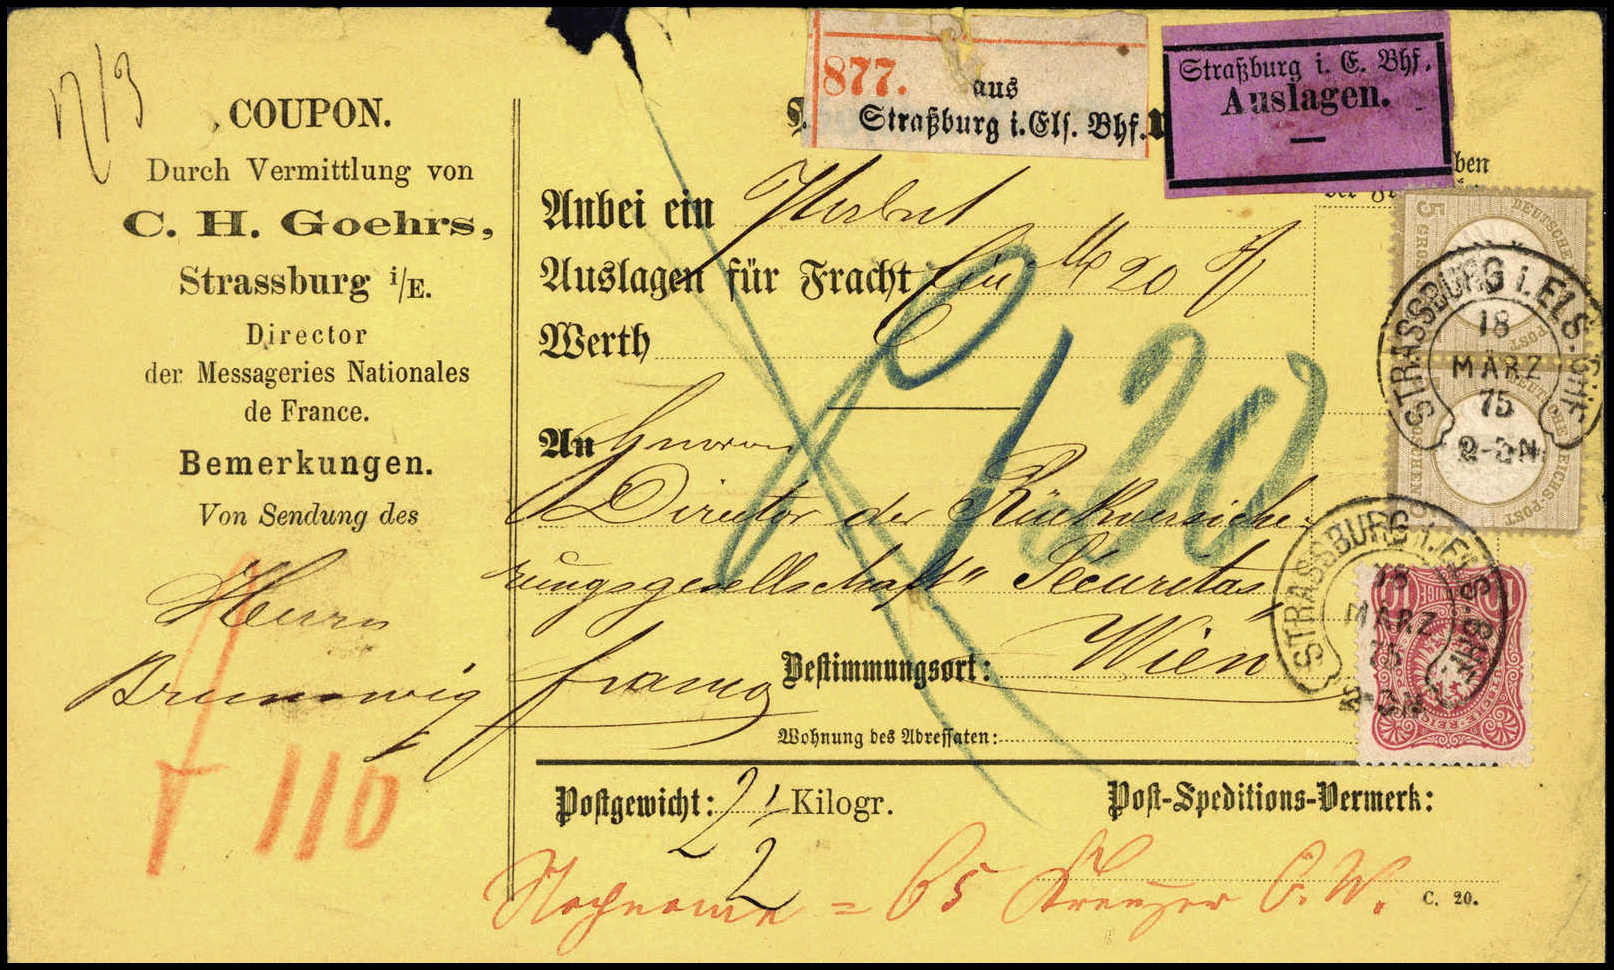 COUPON.
Durch Vermittlung von
C. H. Goehrs,
Strassburg i/E.
Director
der Messageries Nationales
de France.
Bemerkungen.
Von Sendung des
Herrn
Brunswig
110
877.
aus
Straßburg i. Els. Bhf.
Straßburg i. E. Bhf.
Auslagen.
—
Anbei ein
Auslagen für Fracht 20
Werth
120
An Herrn
Director der Rückversiche-
rungsgesellschaft "Securitas"
franco
Bestimmungsort: Wien
Wohnung des Adressaten:
Postgewicht: 2 Kilogr.
2
Post-Speditions-Vermerk:
Nachnahme = 65 Kreuzer Ö. W.
C. 20.
5
STRASSBURG i. ELS. BHF.
18
MÄRZ
75
2-3N
STRASSBURG i. ELS. BHF.
18
MÄRZ
75
2-3N
10